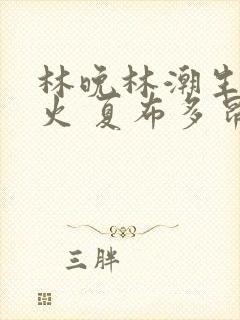 林晚林潮生
火 夏布多昂
三胖